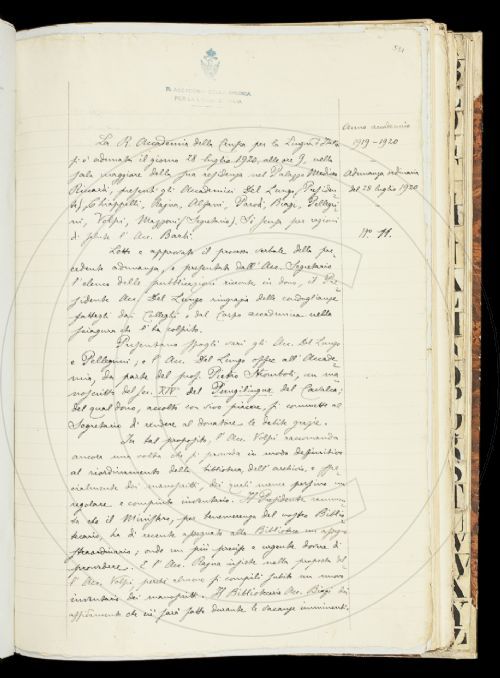 531
R. ACCADEMIA DELLA CRUSCA
PER LA LINGUA D'ITALIA
Anno accademico
1919-1920
Adunanza ordinaria
del 28 luglio 1920
N.o 11.
La R. Accademia della Crusca per la Lingua d'Italia
si è adunata il giorno 28 luglio 1920, alle ore 9, nella
sala maggiore della sua residenza nel Palazzo Mediceo
Riccardi, presenti gli Accademici Del Lungo (Presiden-
te), Chiappelli, Rajna, Alfani, Parodi, Biagi, Pellegri-
ni, Volpi, Mazzoni (Segretario). Si scusa per ragioni
di salute l'Acc. Barbi.
Letto e approvato il processo verbale della pre-
cedente adunanza, e presentato dall'Acc. Segretario
l'elenco delle pubblicazioni ricevute in dono, il Pre-
sidente Acc. Del Lungo ringrazia delle condoglianze
fattegli dai Colleghi e dal Corpo accademico nella
sciagura che l'ha colpito.
Presentano spogli vari gli Acc. Del Lungo
e Pellegrini; e l'Acc. Del Lungo offre all'Accade-
mia, da parte del prof. Pietro Stromboli, un ma-
noscritto del sec. XIV del Pungilingua del Cavalca;
del qual dono, accolto con vivo piacere, si commette al
Segretario di rendere al donatore le debite grazie.
In tal proposito, l'Acc. Volpi raccomanda
ancora una volta che si provveda in modo definitivo
al riordinamento della biblioteca, dell'archivio, e spe-
cialmente dei manoscritti, dei quali manca persino un
regolare e compiuto inventario. Il Presidente rammen-
ta che il Ministro, per benemerenza del nostro Biblio-
tecario, ha di recente assegnato alla Biblioteca un assegno
straordinario; onde un più preciso e urgente dovere di
provvedere. E l'Acc. Rajna insiste nella proposta del-
l'Acc. Volpi perché almeno si compili subito un nuovo
inventario dei manoscritti. Il Bibliotecario Acc. Biagi dà
affidamento che ciò sarà fatto durante le vacanze imminenti.